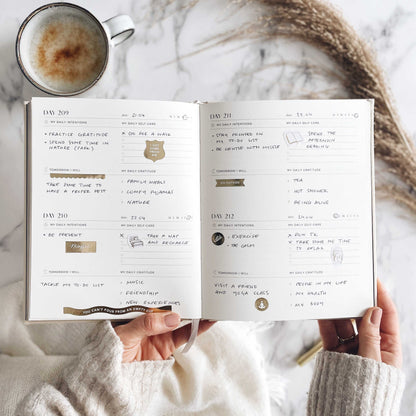 DAY 209
MY DAILY INTENTIONS
MY DAILY SELF CARE
• PRACTICE GRATITUDE
• SPEND SOME TIME IN
NATURE (PARK)
× GO FOR A WALK
TOMORROW I WILL
MY DAILY GRATITUDE
TAKE SOME TIME TO
HAVE A PROPER REST
- FAMILY MEALS
- COMFY PYJAMAS
- NATURE
DAY 210
MY DAILY INTENTIONS
MY DAILY SELF CARE
• BE PRESENT
× TAKE A NAP
AND RECHARGE
TOMORROW I WILL
MY DAILY GRATITUDE
TACKLE MY TO DO LIST
- MUSIC
- FRIENDSHIP
- NEW EXPERIENCES
YOU CAN'T POUR FROM AN EMPTY
DAY 211
MY DAILY INTENTIONS
MY DAILY SELF CARE
• STAY FOCUSED ON
MY TO-DO LIST
• BE GENTLE WITH MYSELF
SPEND THE
AFTERNOON
READING
TOMORROW I WILL
MY DAILY GRATITUDE
- TEA
- HOT SHOWER
- BEING ALIVE
DAY 212
MY DAILY INTENTIONS
MY DAILY SELF CARE
• EXERCISE
• BE CALM
× RUN 5K
× TAKE SOME ME TIME
TO RELAX
TOMORROW I WILL
MY DAILY GRATITUDE
VISIT A FRIEND
AND YOGA CLASS
- PEOPLE IN MY LIFE
- MY HEALTH
- MY BODY